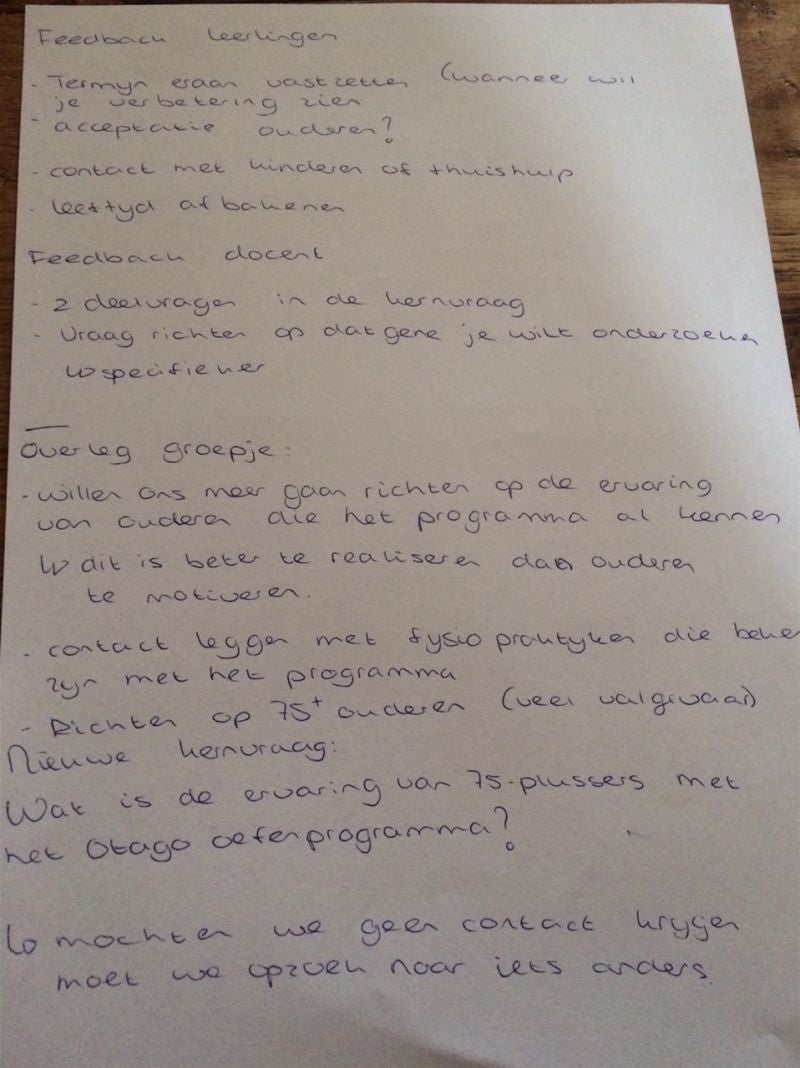 Feedback leerlingen
- Termijn eraan vastzetten (wannee wil
je verbetering zien
- acceptatie ouderen?
- contact met kinderen of thuishulp
- leeftijd afbakenen
Feedback docent
- 2 deelvragen in de kernvraag
- Vraag richten op datgene je wilt onderzoeken
↳ specifieker
Overleg groepje:
- willen ons meer gaan richten op de ervaring
van ouderen die het programma al kennen
↳ dit is beter te realiseren dan ouderen
te motiveren.
- contact leggen met fysiopraktijken die beke
zijn met het programma
- Richten op 75+ ouderen (veel valgevaar)
Nieuwe kernvraag:
Wat is de ervaring van 75-plussers met
het Otago oefenprogramma?
↳ mochten we geen contact krijgen
moet we opzoek naar iets anders.